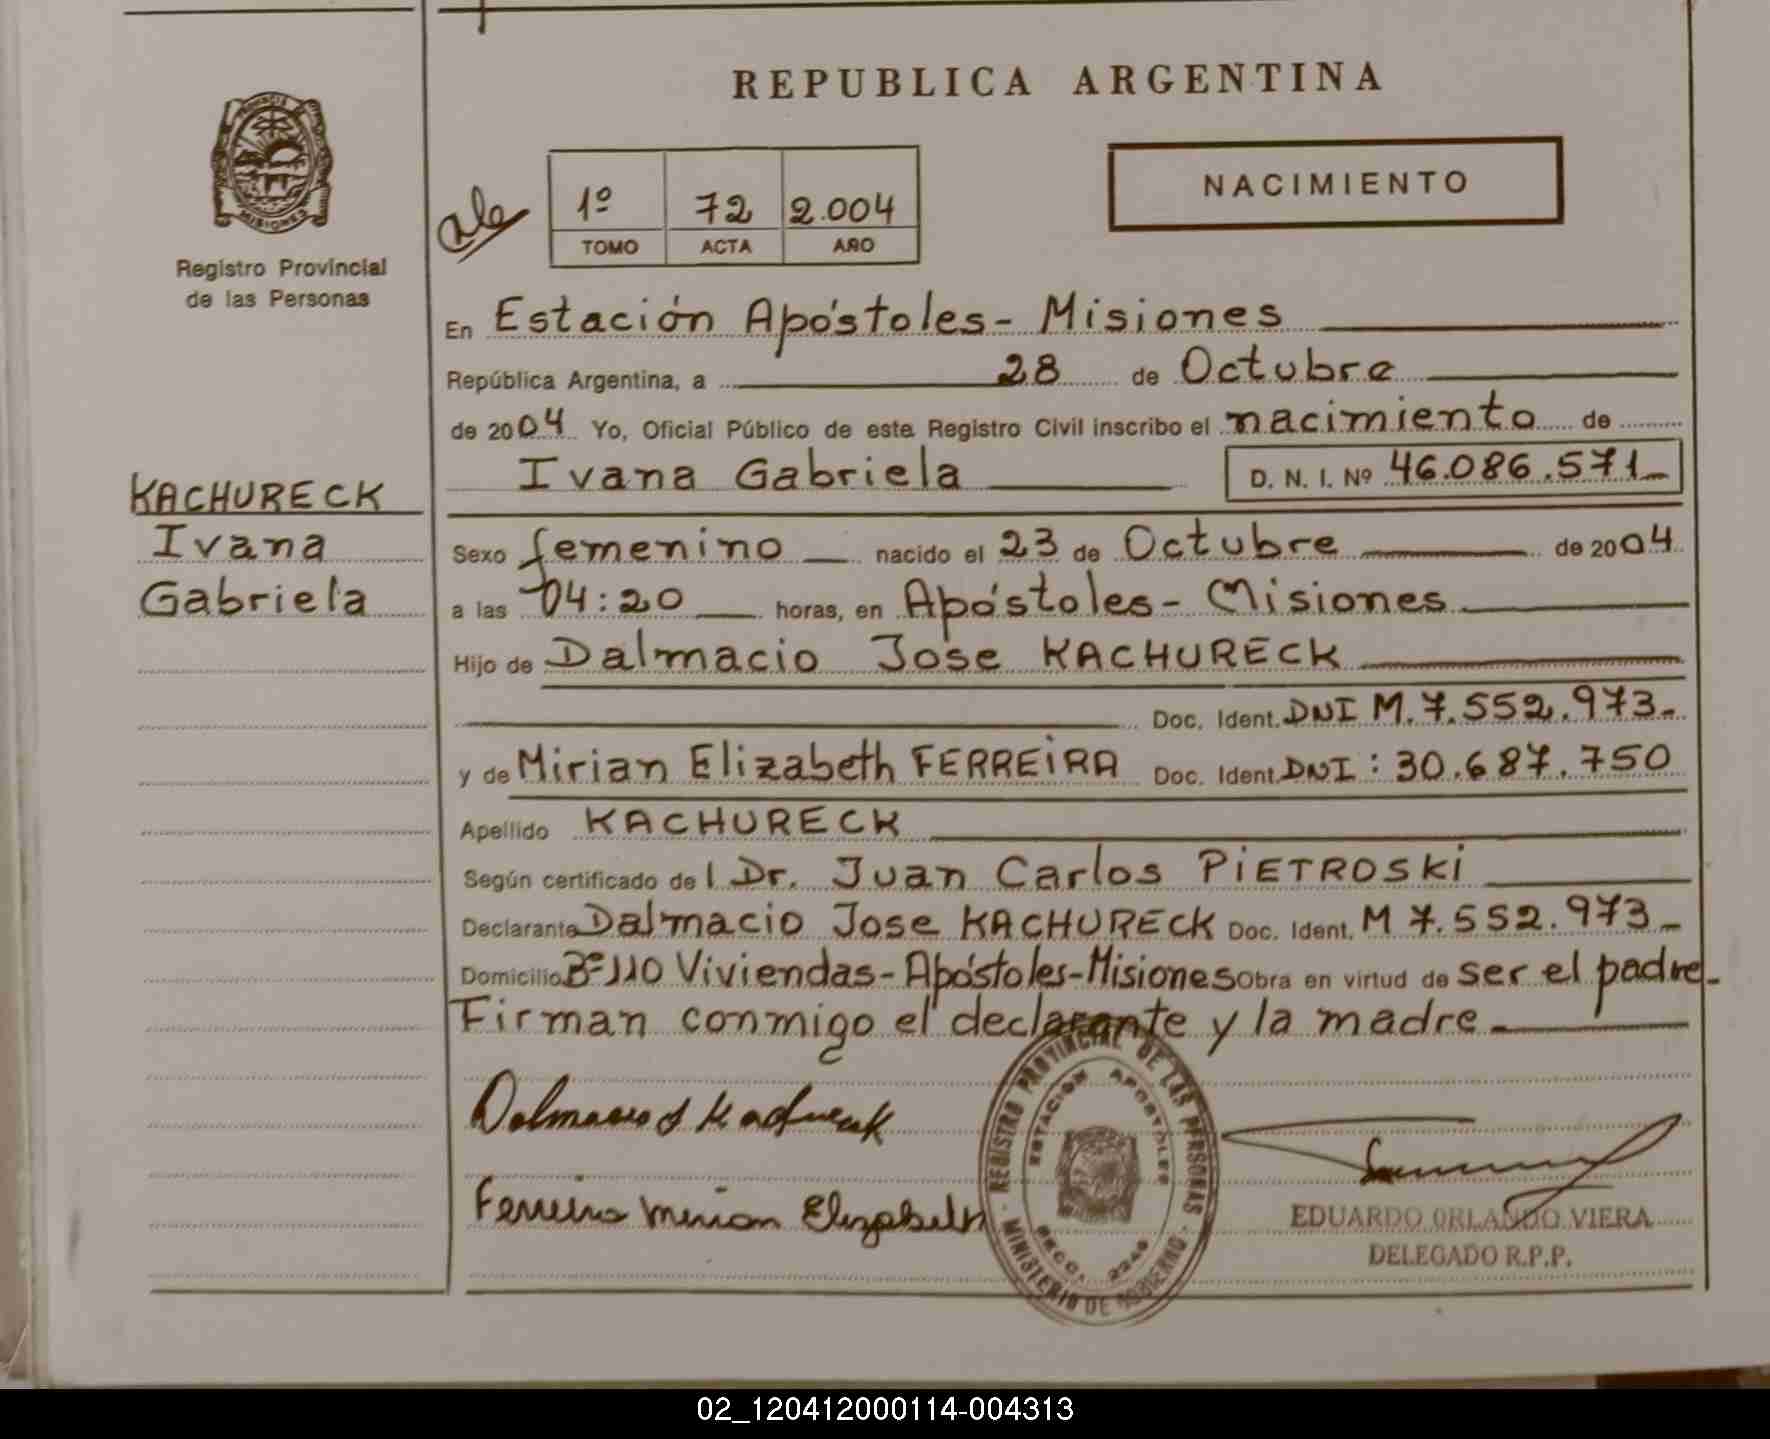 REPUBLICA ARGENTINA
NACIMIENTO
1º 72 2.004
TOMO ACTA AÑO
ale
MISIONES
Registro Provincial
de las Personas
KACHURECK
Ivana
Gabriela
En Estación Apóstoles - Misiones
República Argentina, a 28 de Octubre
de 2004 Yo, Oficial Público de este Registro Civil inscribo el nacimiento de
Ivana Gabriela D. N. I. Nº 46.086.571
Sexo femenino nacido el 23 de Octubre de 2004
a las 04:20 horas, en Apóstoles - Misiones
Hijo de Dalmacio Jose KACHURECK
Doc. Ident. DNI M. 7.552.973-
y de Mirian Elizabeth FERREIRA Doc. Ident. DNI: 30.687.750
Apellido KACHURECK
Según certificado de l Dr. Juan Carlos PIETROSKI
Declarante Dalmacio Jose KACHURECK Doc. Ident. M 7.552.973-
Domicilio Bº 110 Viviendas - Apóstoles - Misiones Obra en virtud de ser el padre-
Firman conmigo el declarante y la madre
Dalmacio J Kachureck
Ferreira Mirian Elizabeth
REGISTRO PROVINCIAL DE LAS PERSONAS
ESTACION APOSTOLES
MINISTERIO DE GOBIERNO
EDUARDO ORLANDO VIERA
DELEGADO R.P.P.
02_120412000114-004313